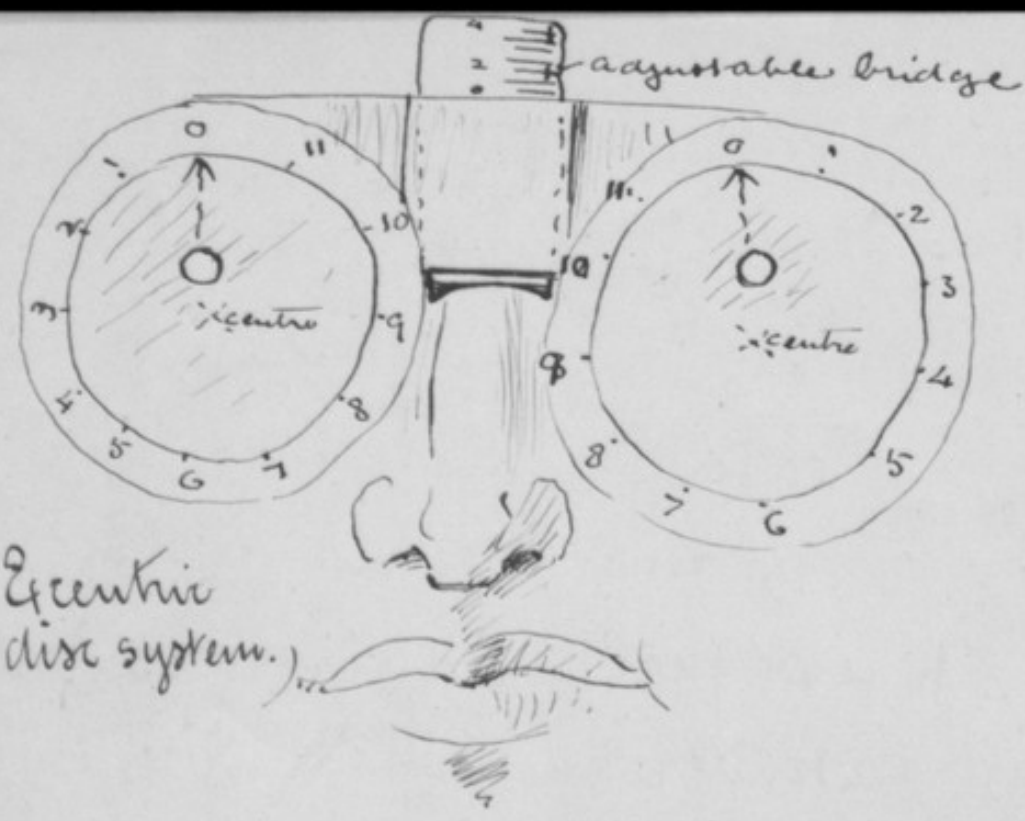 4
2
0
adjustable bridge
0
1
2
3
4
5
6
7
8
9
10
11
centre
0
1
2
3
4
5
6
7
8
9
10
11
11
centre
Excentric
disc system.